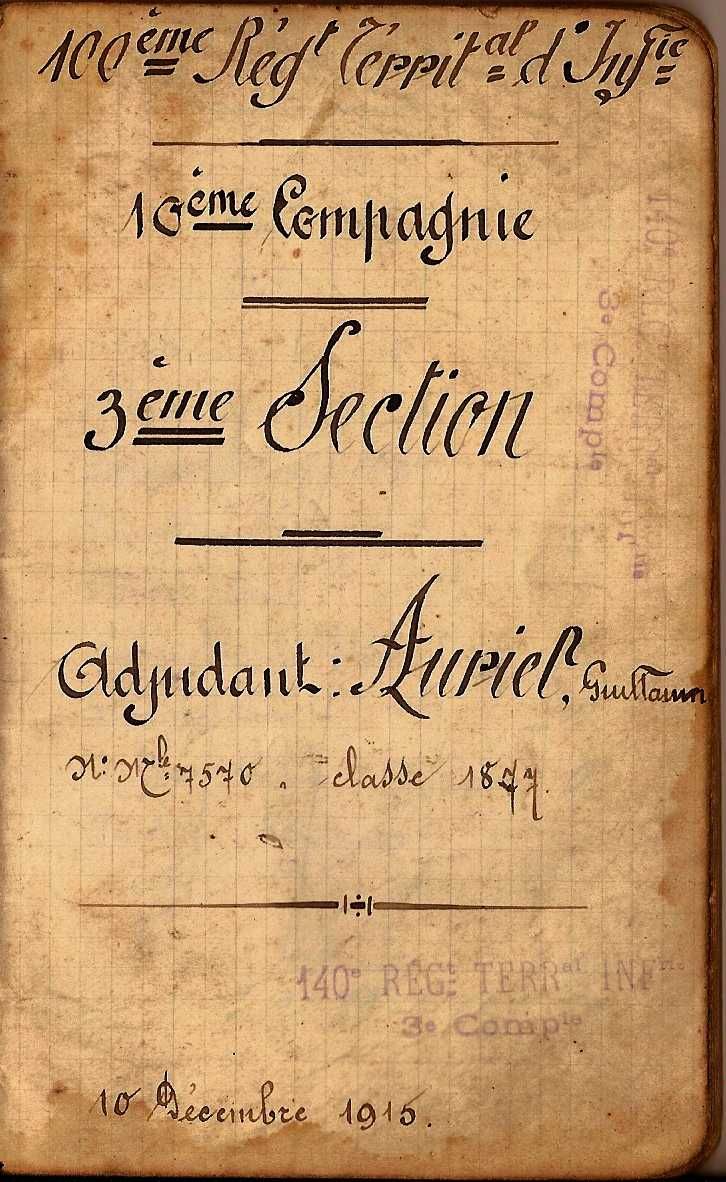 100ème Régt Territal d'Infie
16ème Compagnie
3ème Section
Adjudant: Auriel, Guillaum
N: Mle 7570. classe 1877.
140e RÉGt TERRal INFrie
3e Compie
10 Décembre 1915.
140e
3e Compie